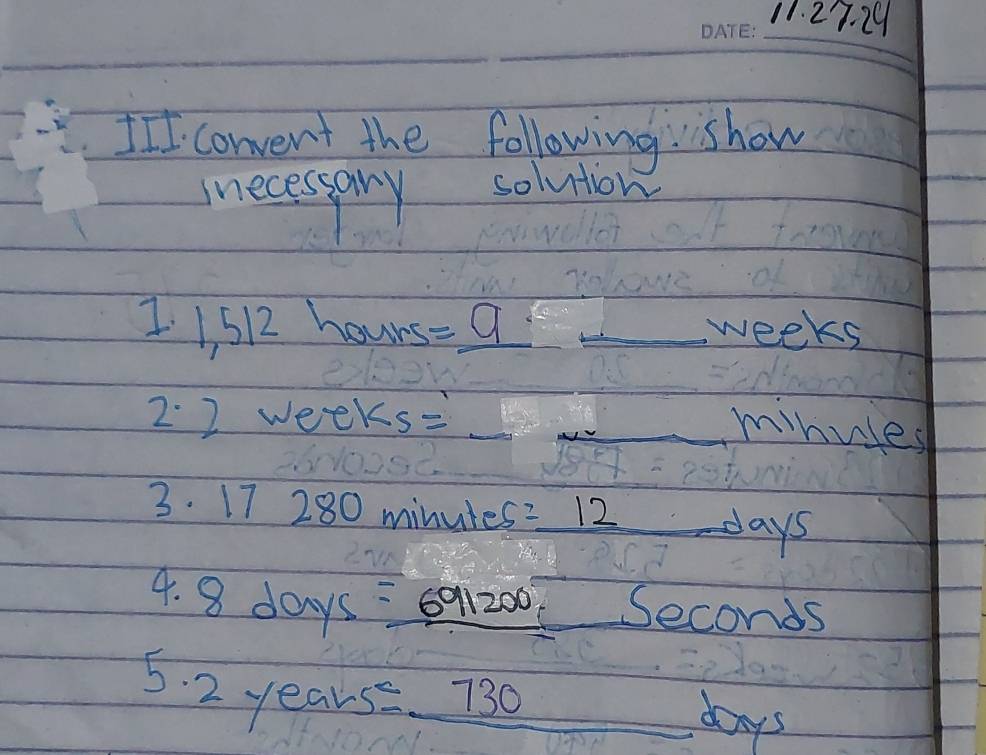 DATE: 11.27.24
III. Convert the following. Show
necessary solution
1. 1,512 hours= 9 weeks
2. 2 weeks= minutes
3. 17 280 minutes= 12 days
4. 8 days = 691200 Seconds
5. 2 years= 730 days